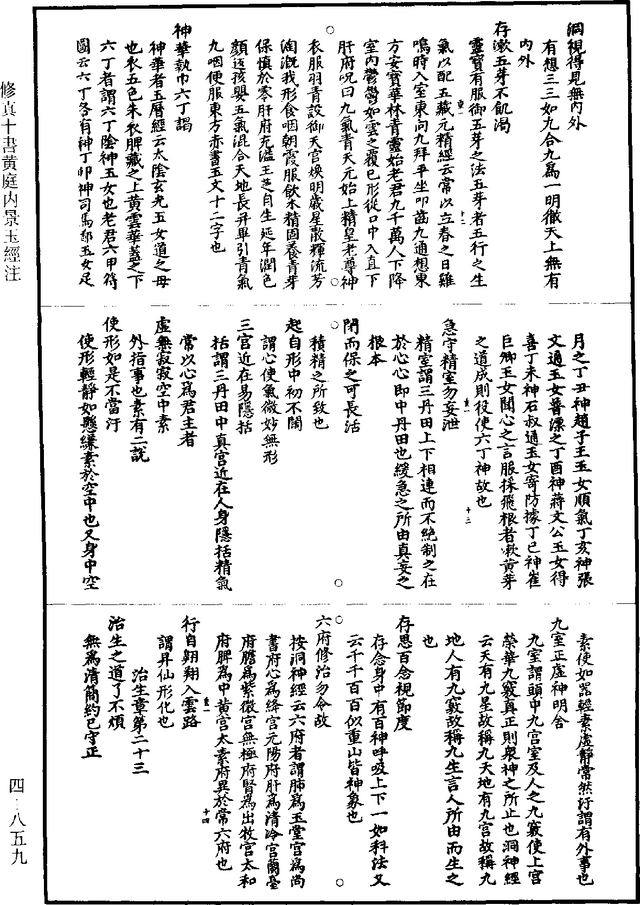 洞視得見無內外
有想三三如九合九爲一明徹天上無有
內外
存漱五芽不飢渴
靈寶有服御五芽之法五芽者五行之生
氣以配五藏元精經云常以立春之日雞
鳴時入室東向九拜平坐叩齒九通想東
方安寶華林青靈始老君九千萬人下降
室內鬱鬱如雲之覆已形從口中入直下
肝府呪曰九氣青天元始上精皇老尊神
衣服羽青設御天官煥明歲星散輝流芳
淘漑我形食咽朝霞服飲木精固養青芽
保慎於零肝府充溢玉芝自生延年潤色
顔返孩嬰五氣混合天地長并畢引青氣
九咽便服東方赤書玉文十二字也
神華執巾六丁謁
神華者玉曆經云太陰玄光玉女道之母
也衣五色朱衣脾藏之上黄雲華蓋之下
六丁者謂六丁陰神玉女也老君六甲符
圖云六丁各有神丁卯神司馬卿玉女足
月之丁丑神趙子王玉女順氣丁亥神張
文通玉女普漂之丁酉神蔣文公玉女得
喜丁未神石叔通玉女寄防據丁巳神崔
巨卿玉女開心之言服採飛根者漱黄芽
之道成則役使六丁神故也
急守精室勿妄泄
精室謂三丹田上下相連而不絶制之在
於心心即中丹田也緩急之所由真妄之
根本
閉而保之可長活
積精之所致也
起自形中初不闊
謂心使氣微妙無形
三官近在易隱括
括謂三丹田中真官近在人身隱括精氣
常以心爲君主者
虛無寂寂空中素
外指事也素有二說
使形如是不當汙
使形輕靜如懸縑素於空中也又身中空
素使如器輕素虛靜常然汙謂有外事也
九室正虛神明舍
九室謂頭中九宫室及人之九竅使上宫
榮華九竅真正則衆神之所止也洞神經
云天有九星故稱九天地有九宫故稱九
地人有九竅故稱九生言人所由而生之
也
存思百念視節度
存念身中有百神呼吸上下一如科法又
云千千百百似重山皆神象也
六府修治勿令故
按洞神經云六府者謂肺爲玉堂宫爲尚
書府心爲絳宫元陽府肝爲清泠宫蘭臺
府膽爲紫微宫無極府腎爲出牧宫太和
府脾爲中黄宫太素府異於常六府也
行自翱翔入雲路
謂昇仙形化也
治生章第二十三
治生之道了不煩
無爲清簡約已守正
修真十書黄庭内景玉經注
四‥八五九